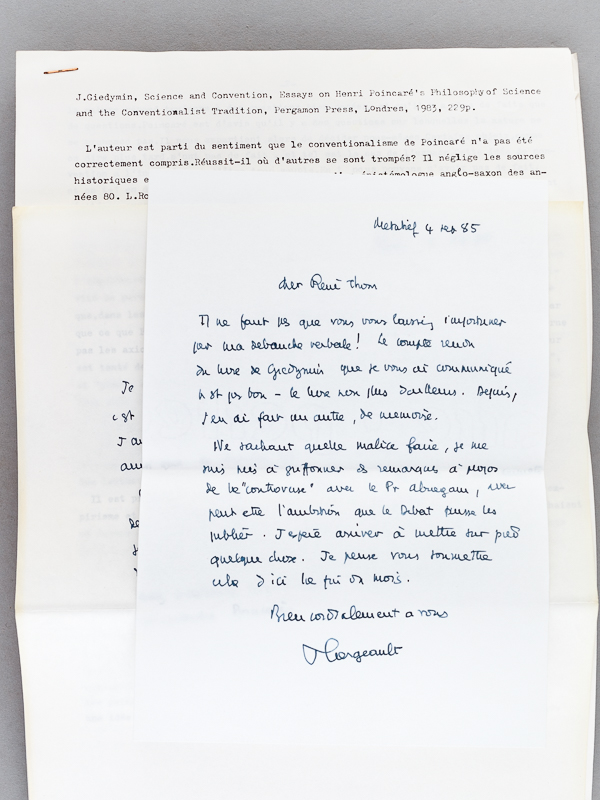 J.Giedymin, Science and Convention, Essays on Henri Poincaré's Philosophy of Science
and the Conventionalist Tradition, Pergamon Press, Londres, 1983, 229p.
L'auteur est parti du sentiment que le conventionalisme de Poincaré n'a pas été
correctement compris.Réussit-il où d'autres se sont trompés? Il néglige les sources
historiques e
épistémologue anglo-saxon des an-
nées 80. L.Ro
4 85
cher René Thom
Il ne faut pas que vous vous laissiez importuner
par ma débauche verbale! Le compte rendu
du livre de Giedymin que je vous ai communiqué
n'est pas bon - le livre non plus d'ailleurs. Depuis,
j'en ai fait un autre, de mémoire.
Ne sachant quelle malice faire, je me
suis mis à griffonner des remarques à propos
de la "controverse" avec le Pr Abragam, avec
peut etre l'ambition que le Débat puisse les
publier. J'espère arriver à mettre sur pied
quelque chose. Je pense vous soumettre
cela d'ici la fin du mois.
Bien cordialement a vous
JLargeault
Je
est
J'au